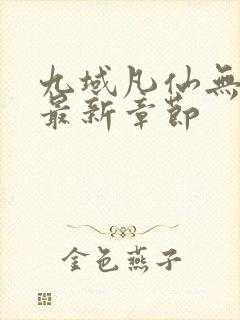 九域凡仙無
最新章節
金色燕子